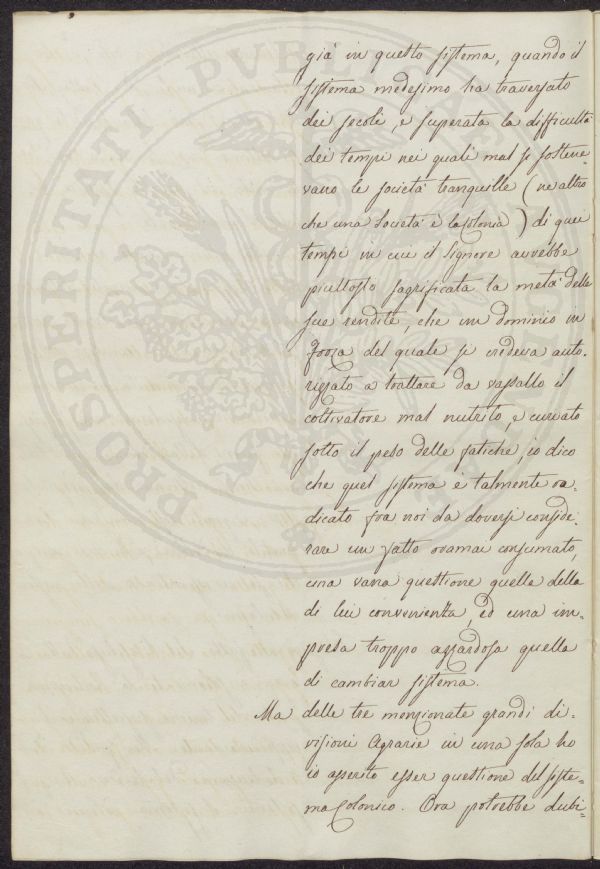 già in questo sistema, quando il
sistema medesimo ha traversato
dei secoli, e superata la difficultà
dei tempi nei quali mal si sostene-
vano le società tranquille (ne altro
che una Società è la Colonia) di quei
tempi in cui il Signore avrebbe
piuttosto sagrificata la metà delle
sue rendite, che un dominio in
forza del quale si credeva auto-
rizzato a trattare da vassallo il
coltivatore mal nutrito, e curvato
sotto il peso delle fatiche, io dico
che quel sistema è talmente ra-
dicato fra noi da doversi conside-
rare un fatto oramai consumato,
una vana questione quella della
di lui convenienza, ed una im-
presa troppo azzardosa quella
di cambiar sistema.
Ma delle tre menzionate grandi di-
visioni Agrarie in una sola ho
io asserito esser questione del siste-
ma Colonico. Ora potrebbe dubi-
PROSPERITATI PUBLICAE